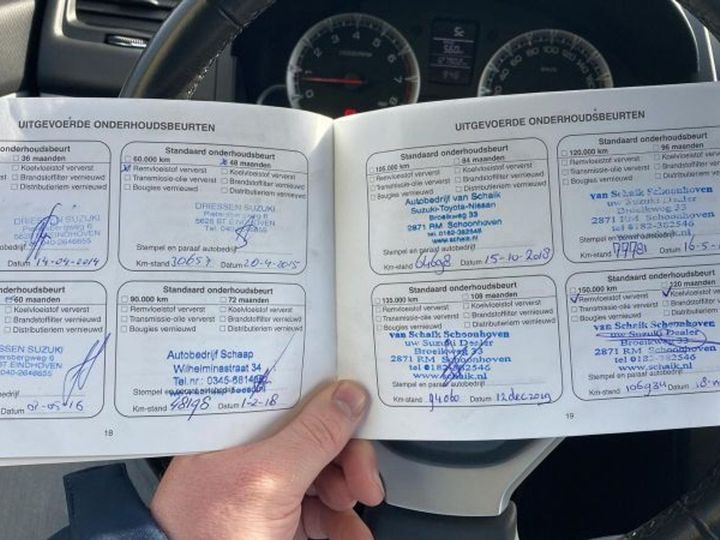 UITGEVOERDE ONDERHOUDSBEURTEN
onderhoudsbeurt
36 maanden
Koelvloeistof ververst
Brandstoffilter vernieuwd
Distributieriem vernieuwd
DRIESSEN SUZUKI
EINDHOVEN
040-2646655
autobedrijf
Datum 14-04-2014
Standaard onderhoudsbeurt
60.000 km 48 maanden
Remvloeistof ververst Koelvloeistof ververst
Transmissie-olie ververst Brandstoffilter vernieuwd
Bougies vernieuwd Distributieriem vernieuwd
DRIESSEN SUZUKI
5628 BT EINDHOVEN
Stempel en paraaf autobedrijf
Km-stand 30657 Datum 20-4-2015
onderhoudsbeurt
60 maanden
Koelvloeistof ververst
Brandstoffilter vernieuwd
Distributieriem vernieuwd
SUZUKI
EINDHOVEN
040-2646655
autobedrijf
Datum
Standaard onderhoudsbeurt
90.000 km 72 maanden
Remvloeistof ververst Koelvloeistof ververst
Transmissie-olie ververst Brandstoffilter vernieuwd
Bougies vernieuwd Distributieriem vernieuwd
Autobedrijf Schaap
Wilhelminastraat 34
Tel.nr.: 0345-
Stempel en paraaf
Km-stand 48198 Datum 1-2-18
18
UITGEVOERDE ONDERHOUDSBEURTEN
Standaard onderhoudsbeurt
105.000 km 84 maanden
Remvloeistof ververst Koelvloeistof ververst
Transmissie-olie ververst Brandstoffilter vernieuwd
Bougies vernieuwd Distributieriem vernieuwd
Autobedrijf van Schaik
Suzuki-Toyota-Nissan
Broeikweg 33
2871 RM Schoonhoven
tel. 0182-382546
www.schaik.nl
Stempel en paraaf autobedrijf
Km-stand 64698 Datum 15-10-2018
Standaard onderhoudsbeurt
120.000 km 96 maanden
Remvloeistof ververst Koelvloeistof ververst
Transmissie-olie ververst Brandstoffilter vernieuwd
Bougies vernieuwd Distributieriem vernieuwd
van Schaik Schoonhoven
uw Suzuki Dealer
Broeikweg 33
2871 RM Schoonhoven
tel 0182-382546
Stempel en paraaf autobedrijf
Km-stand Datum
Standaard onderhoudsbeurt
135.000 km 108 maanden
Remvloeistof ververst Koelvloeistof ververst
Transmissie-olie ververst Brandstoffilter vernieuwd
Bougies vernieuwd Distributieriem vernieuwd
van Schaik Schoonhoven
uw Suzuki Dealer
Broeikweg 33
2871 RM Schoonhoven
tel 0182-382546
www.schaik.nl
Stempel en paraaf autobedrijf
Km-stand 94000 Datum 12 dec 2019
Standaard onderhoudsbeurt
150.000 km 120 maanden
Remvloeistof ververst Koelvloeistof ververst
Transmissie-olie ververst Brandstoffilter vernieuwd
Bougies vernieuwd Distributieriem vernieuwd
van Schaik Schoonhoven
uw Suzuki Dealer
Broeikweg 33
2871 RM Schoonhoven
tel 0182-382546
www.schaik.nl
Stempel en paraaf autobedrijf
Km-stand 106934 Datum
19